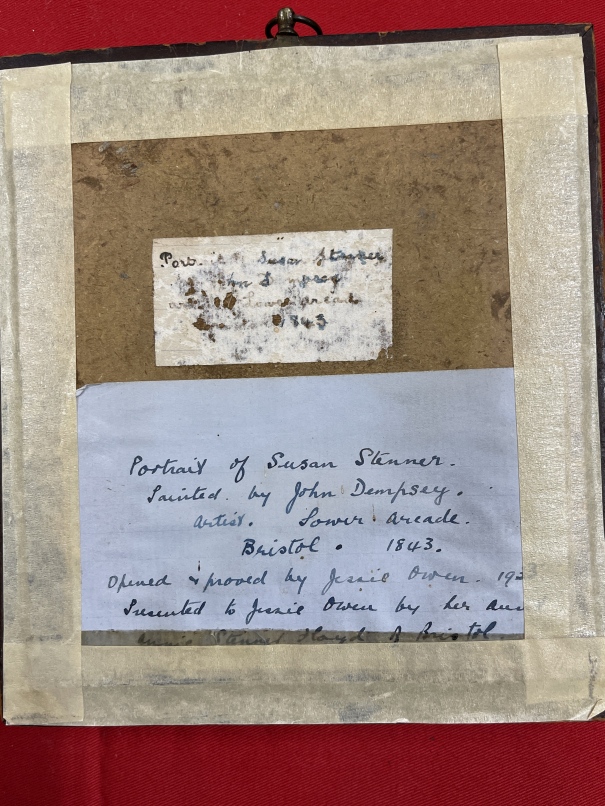 Portrait of Susan Stenner
John
Lower arcad
1843
Portrait of Susan Stenner.
Painted. by John Dempsey.
Artist. Lower Arcade.
Bristol. 1843.
Opened & proved by Jessie Owen. 193
Presented to Jessie Owen by her aun
Annie Stenner Lloyd of Bristol